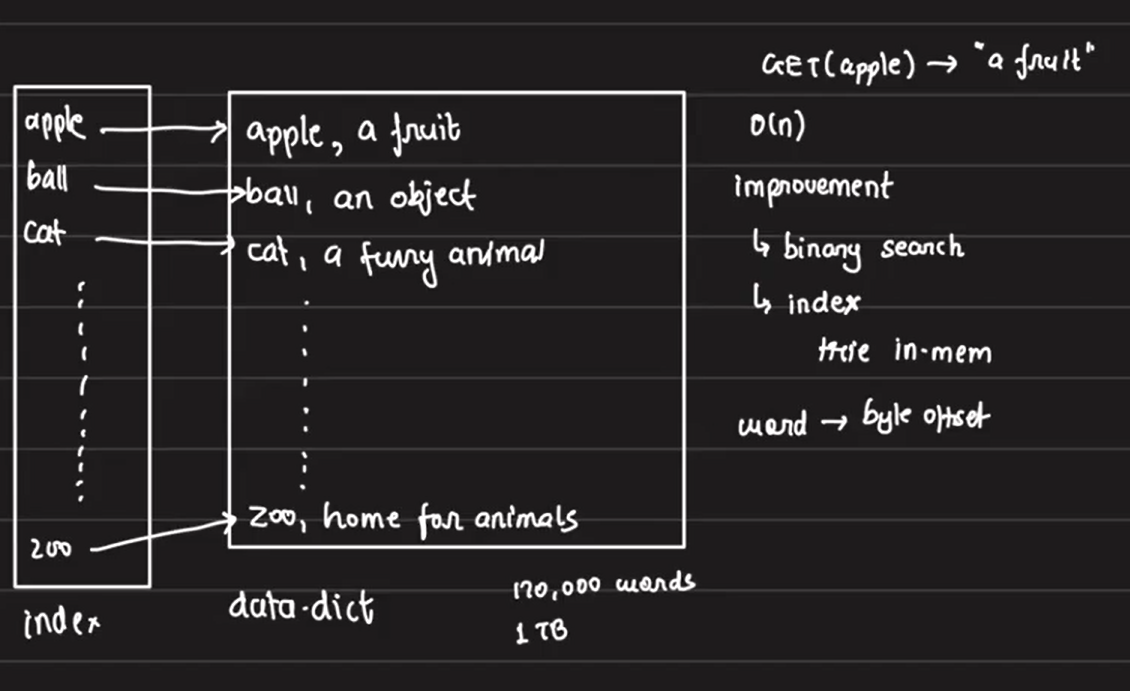 apple
ball
cat
zoo
index
apple, a fruit
ball, an object
cat, a furry animal
zoo, home for animals
data.dict
170,000 words
1 TB
GET(apple) → "a fruit"
O(n)
improvement
↳ binary search
↳ index
in-mem
word → byte offset